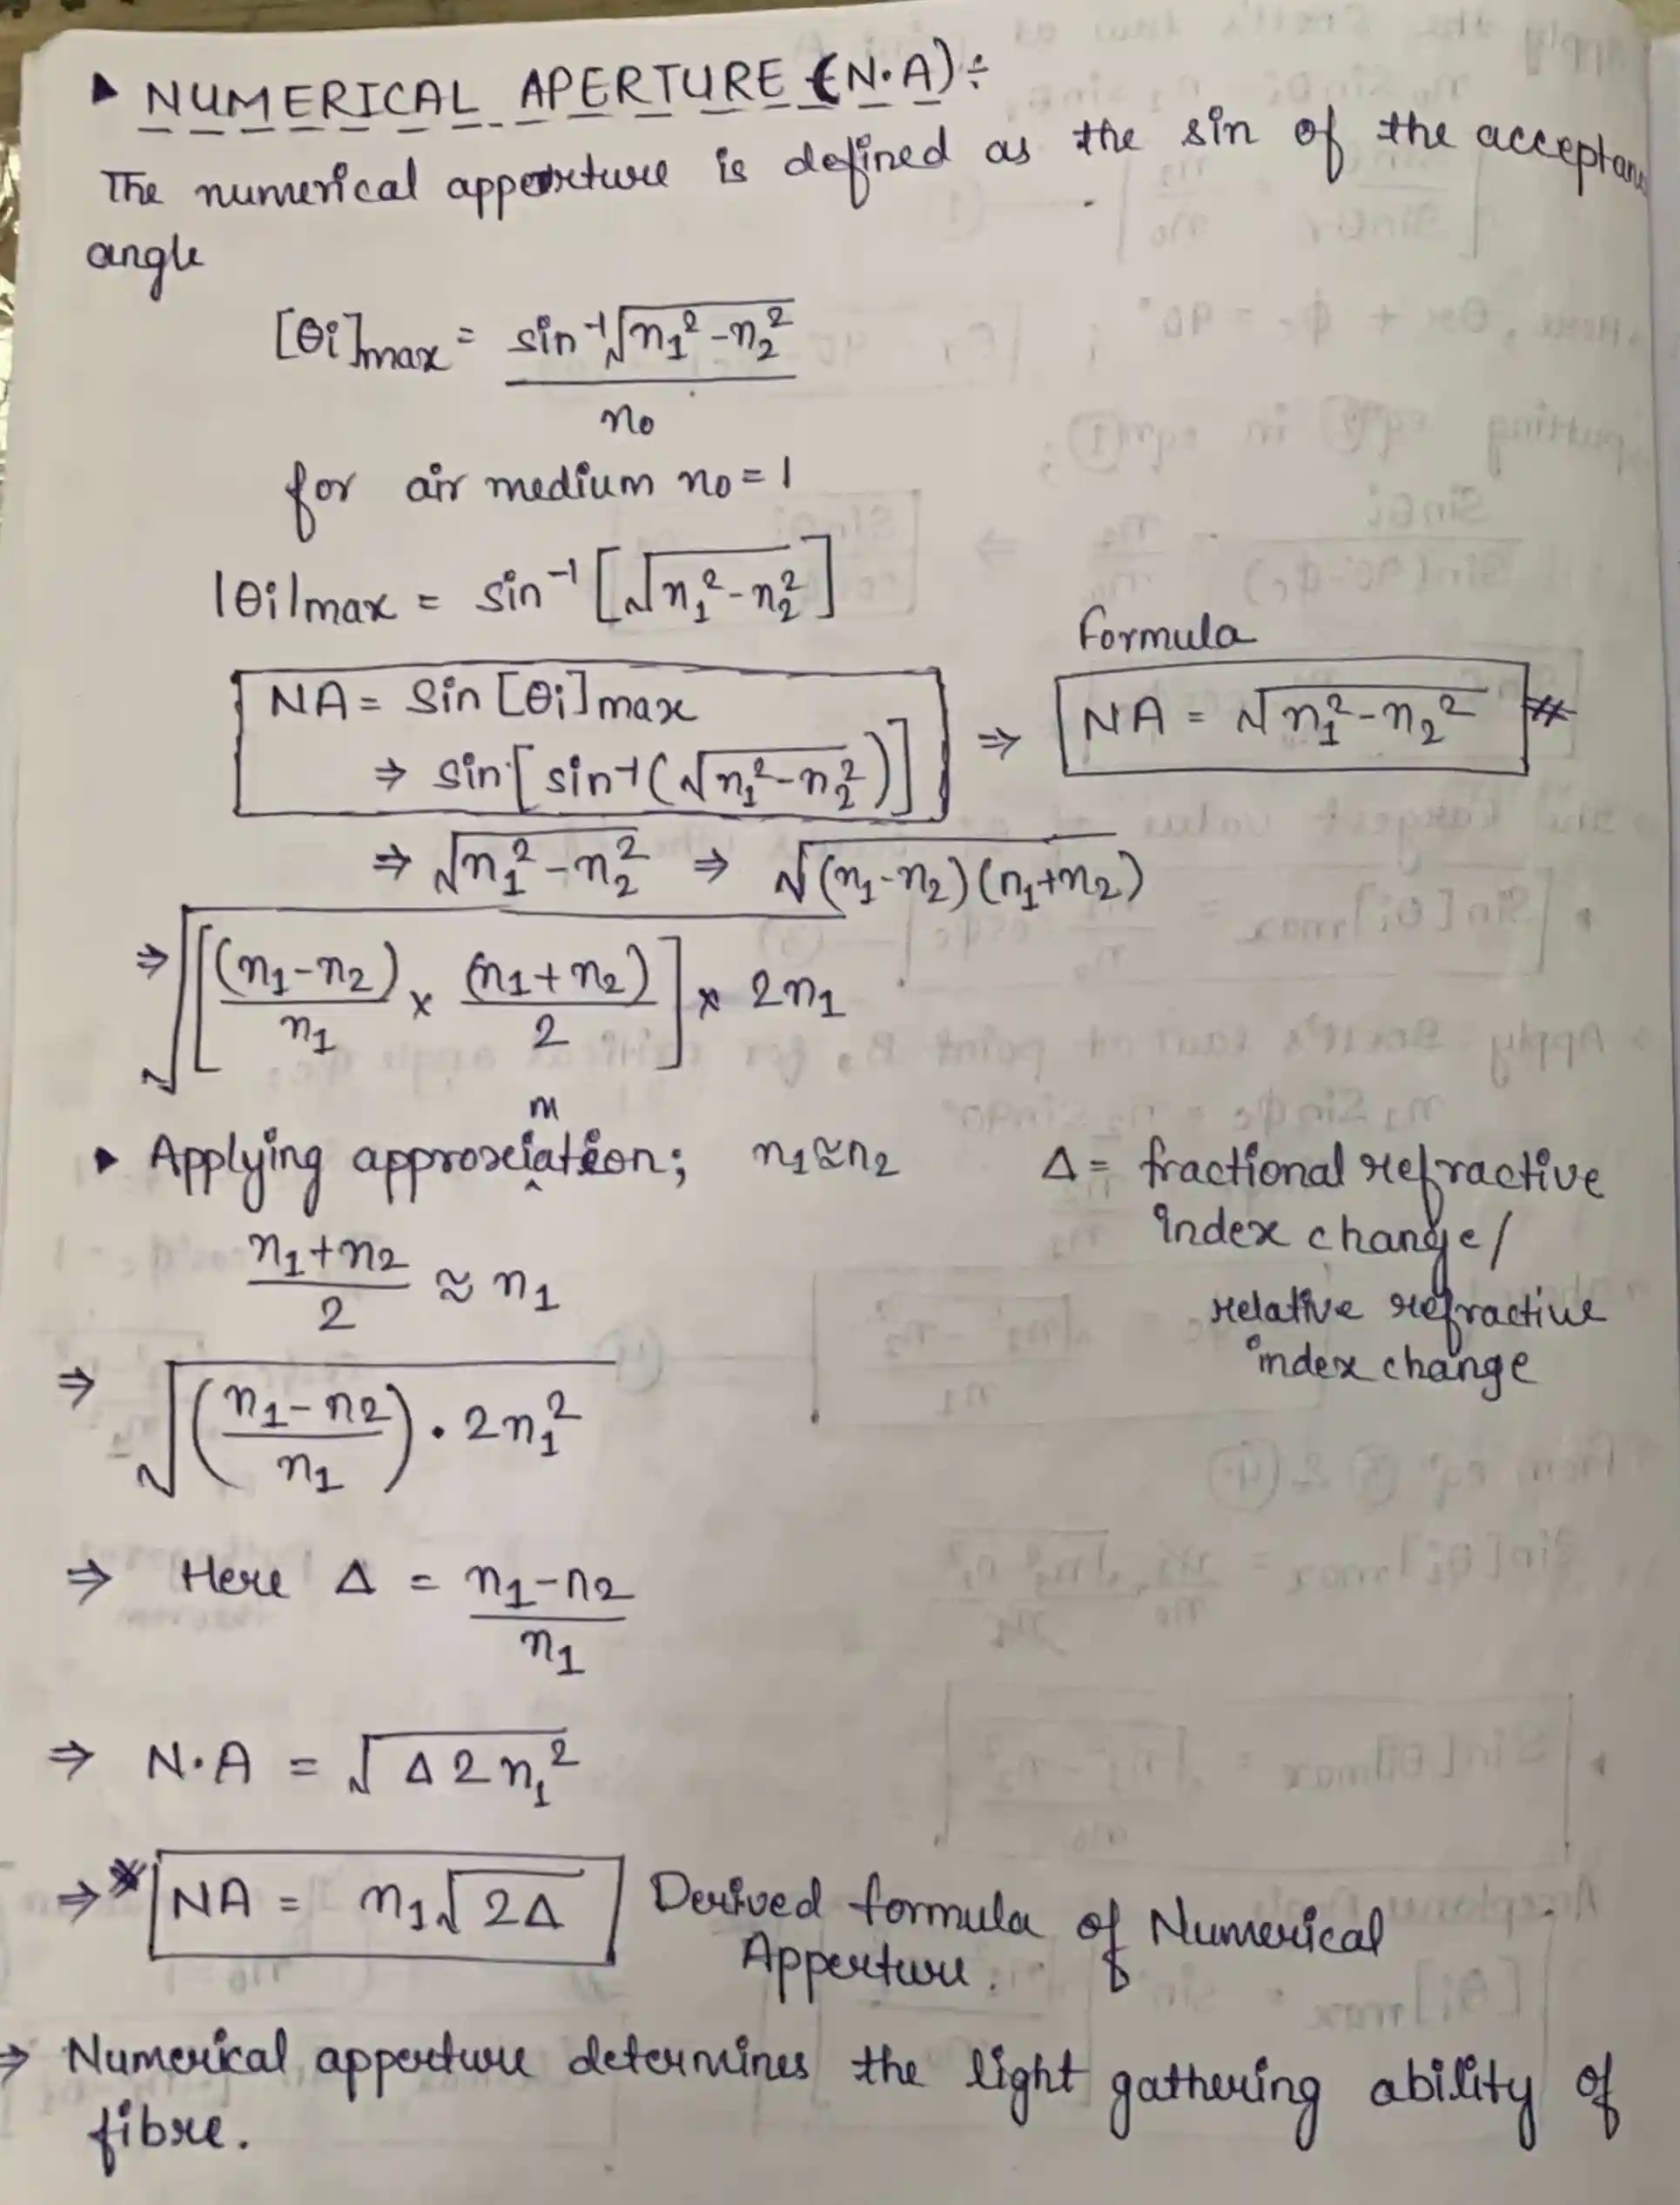 ▸ NUMERICAL APERTURE (N.A) ÷
The numerical apperture is defined as the sin of the acceptan
angle
[θi]max = sin⁻¹√n₁²-n₂² / n₀
for air medium n₀ = 1
|θi|max = sin⁻¹ [√n₁²-n₂²]
Formula
NA = Sin [θi]max
⇒ sin [sin⁻¹(√n₁²-n₂²)] ⇒ NA = √n₁²-n₂² #
⇒ √n₁²-n₂² ⇒ √(n₁-n₂)(n₁+n₂)
⇒ √[(n₁-n₂)/n₁ × (n₁+n₂)/2] × 2n₁
▸ Applying approximation; n₁≈n₂
Δ = fractional refractive
index change/
relative refractive
index change
n₁+n₂ / 2 ≈ n₁
⇒ √((n₁-n₂)/n₁) . 2n₁²
⇒ Here Δ = n₁-n₂ / n₁
⇒ N.A = √Δ2n₁²
⇒ * NA = n₁√2Δ Derived formula of Numerical
Apperture.
⇒ Numerical apperture determines the light gathering ability of
fibre.